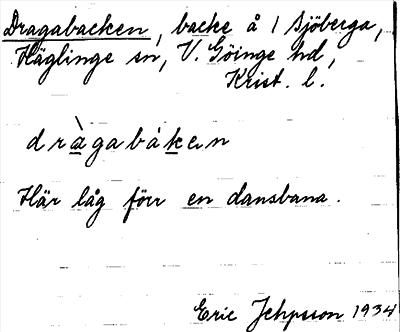 Dragabacken, backe å 1 Sjöberga,
Häglinge sn, V. Göinge hd,
Krist. l.
dràgabáken
Här låg förr en dansbana.
Eric Jehpsson 1934